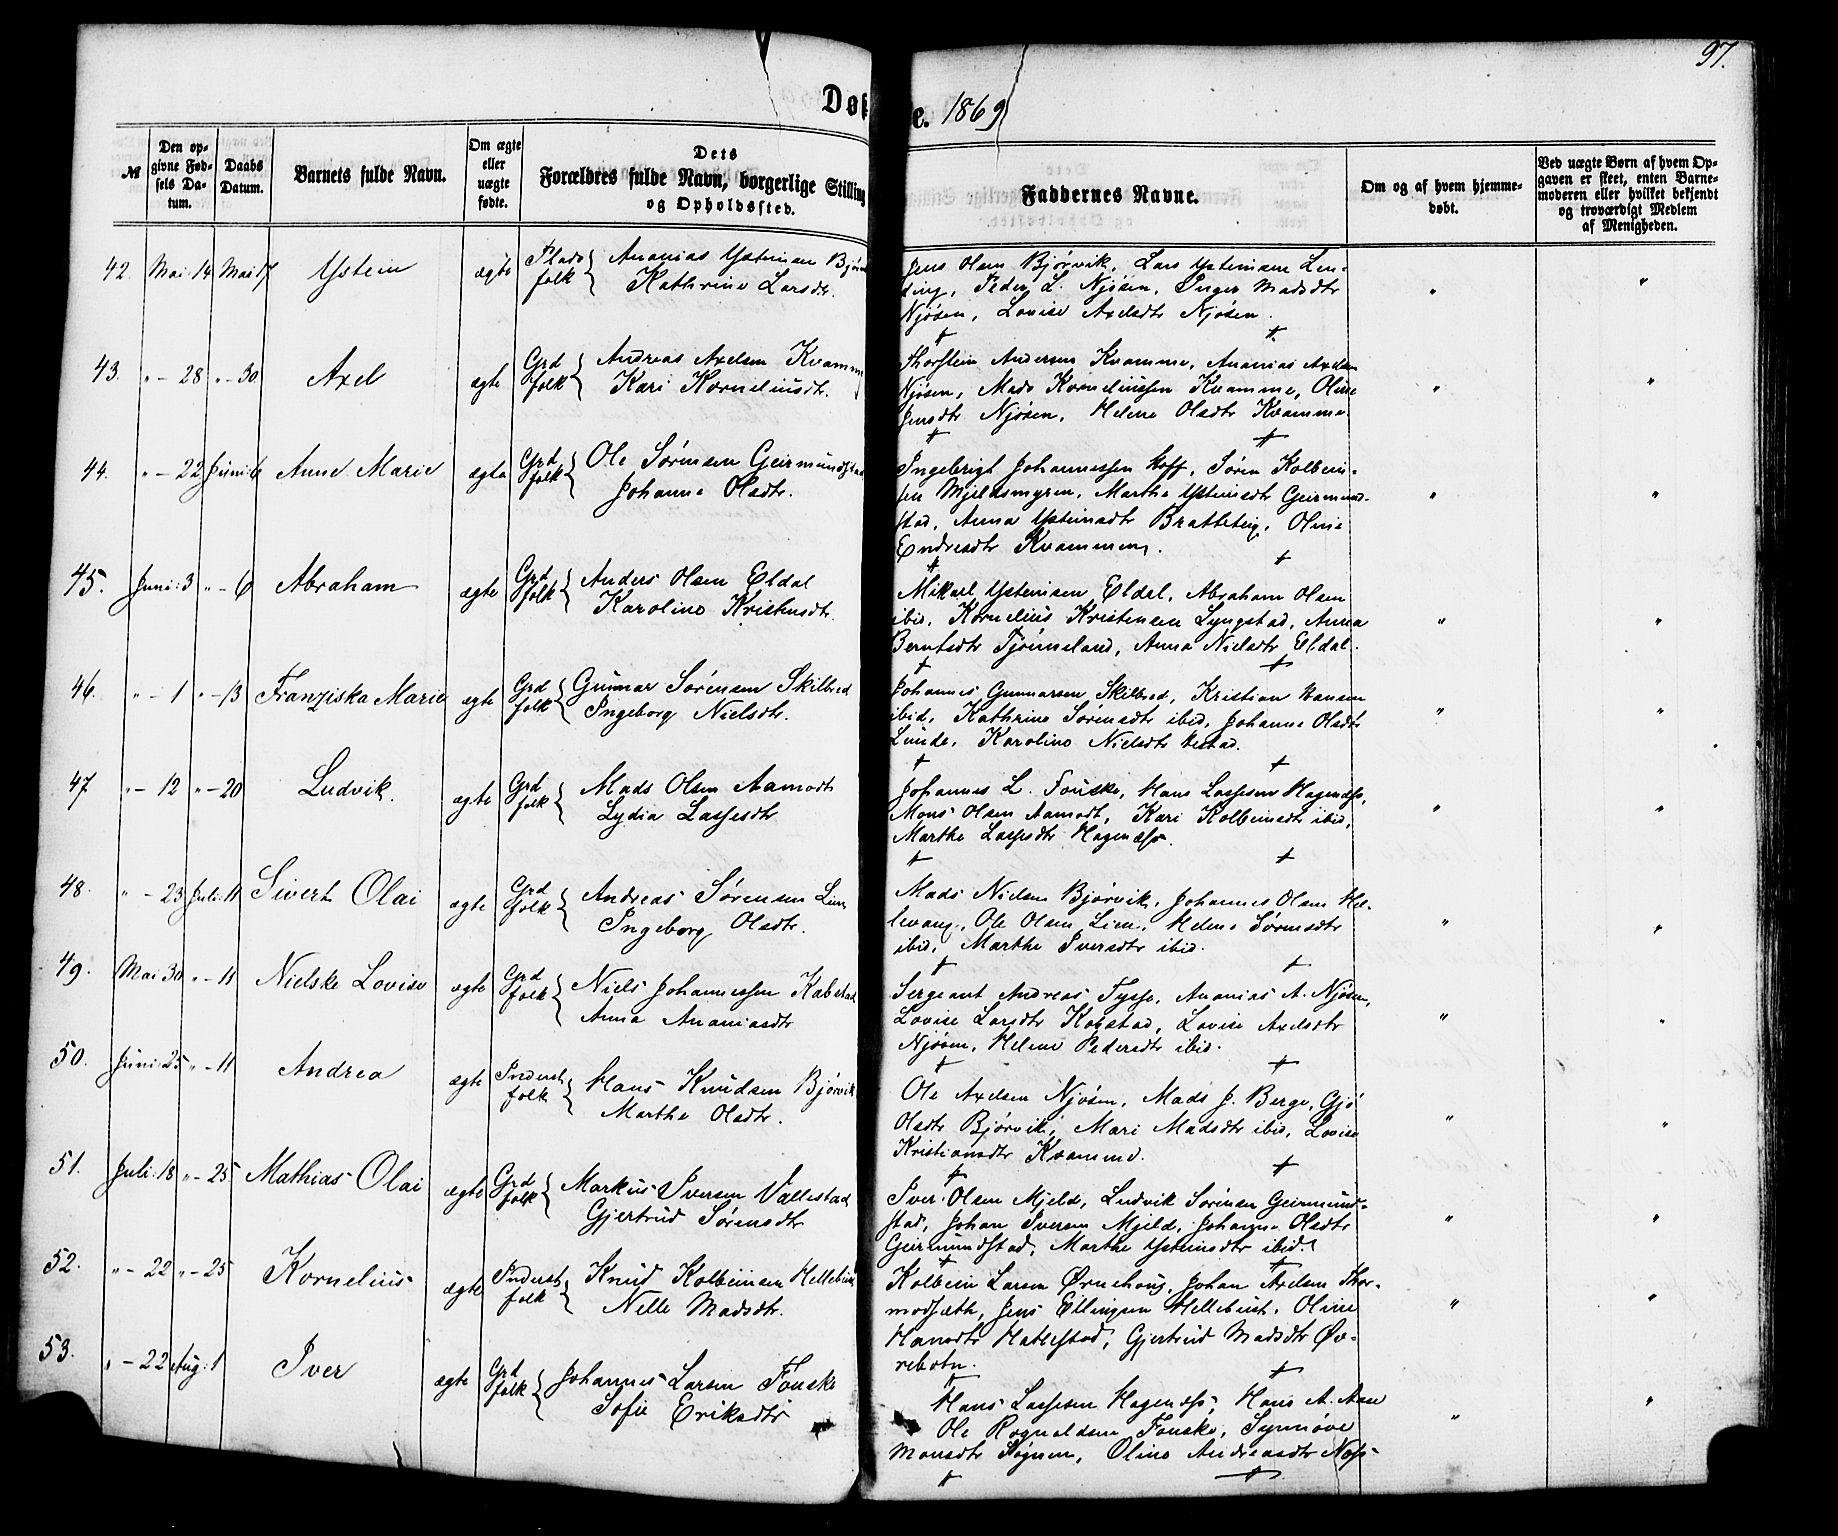 97.
Døb
e. 1869
№
Den op-
givne Fød-
sels Da-
tum.
Daabs
Datum.
Barnets fulde Navn.
Om ægte
eller
uægte
fødte.
Dets
Forældres fulde Navn, borgerlige Stilling
og Opholdssted.
Faddernes Navne.
Om og af hvem hjemme-
døbt.
Ved uægte Børn af hvem Op-
gaven er skeet, enten Barne-
moderen eller hvilket bekjendt
og troværdigt Medlem
af Menigheden.
42. Mai 14 Mai 17 Ystein ægte Plads folk { Ananias Ysteinsen Bjør
Kathrine Larsdtr.
Jens Olsen Bjørvik, Lars Ysteinsen Len-
ding, Peder L. Njøsen, Inger Madsdtr
Njøsen, Lovise Axelsdtr Njøsen.
43. " - 28 " - 30 Axel ægte Grd folk { Andreas Axelsen Kvamme
Kari Korneliusdtr.
Thorstein Andersen Kvamme, Ananias Axelsen
Njøsen, Mads Korneliussen Kvamme, Oline
Jensdtr Njøsen, Helene Olsdtr Kvamme.
44. " - 22 Juni 6 Anne Marie ægte Grd folk { Ole Sørensen Geirmundstad
Johanne Olsdtr.
Ingebrigt Johannessen Hoff, Søren Kolbein-
sen Mjeldsmyren, Marthe Ysteinsdtr Geirmund-
stad, Anna Ysteinsdtr Bratteteig, Oline
Endresdtr Kvammen.
45. Juni: 3 " - 6 Abraham ægte Grd folk { Anders Olsen Eldal
Karoline Kristensdtr.
Mikael Ysteinsen Eldal, Abraham Olsen
ibid, Kornelius Kristensen Lyngstad, Anna
Berntsdtr Tjønneland, Anna Nielsdtr Eldal.
46. " - 1 " - 13 Franziska Marie ægte Grd folk { Gunnar Sørensen Skilbred
Ingeborg Nielsdtr.
Johannes Gunnarsen Skilbred, Kristian Hansen
ibid, Kathrine Sørensdtr ibid, Johanne Olsdtr
Lunde, Karoline Nielsdtr Hestad.
47 " - 12 " - 20 Ludvik. ægte Grd folk { Mads Olsen Aamodt
Lydia Lassesdtr
Johannes L. Fouske, Hans Lassesen Hagenæss,
Mons Olsen Aamodt, Kari Kolbeinsdtr ibid,
Marthe Lassesdtr Hagenæss.
48. " - 23 Juli: 11 Sivert Olai ægte Grd folk { Andreas Sørensen Lien
Ingeborg Olsdtr.
Mads Nielsen Bjørvik, Johannes Olsen Hel-
levang, Ole Olsen Lien, Helene Sørensdtr
ibid, Marthe Iversdtr ibid.
49. Mai 30 " - 11 Nielske Lovise ægte Grd folk { Niels Johannessen Kobstad
Anna Ananiasdtr
Sergeant Andreas Tysse, Ananias A. Njøsen,
Lovise Larsdtr Kobstad, Lovise Axelsdtr
Njøsen, Helene Pedersdtr ibid.
50. Juni: 25 " - 11 Andrea ægte Inderst folk { Hans Knudsen Bjørvik
Marthe Olsdtr.
Ole Axelsen Njøsen, Mads J. Berge, Gjø
Olsdtr Bjørvik, Mari Madsdtr ibid, Lovise
Kristiansdtr Kvamme.
51. Juli: 18 " - 25 Mathias Olai ægte Grd folk { Markus Iversen Vallestad
Gjertrud Sørensdtr
Iver Olsen Mjeld, Ludvik Sørensen Geirmund-
stad, Johan Iversen Mjeld, Johanne Olsdtr
Geirmundstad, Marthe Ysteinsdtr ibid.
52. " - 22 " - 25 Kornelius ægte Inderst folk { Knud Kolbeinsen Hellebust
Nille Madsdtr.
Kolbein Larsen Ørnehoug, Johan Axelsen Thor-
modsæth, Jens Ellingsen Hellebust, Oline
Hansdtr Hatlestad, Gjertrud Madsdtr Øv-
rebotn.
53. " - 22 Aug: 1 Iver ægte Grd folk { Johannes Larsen Fouske
Sofie Eriksdtr
Hans Lassesen Hagenæss, Hans A. Aase
Ole Rognaldsen Fouske, Synnøve
Monsdtr Sognen, Oline Andreasdtr Næss